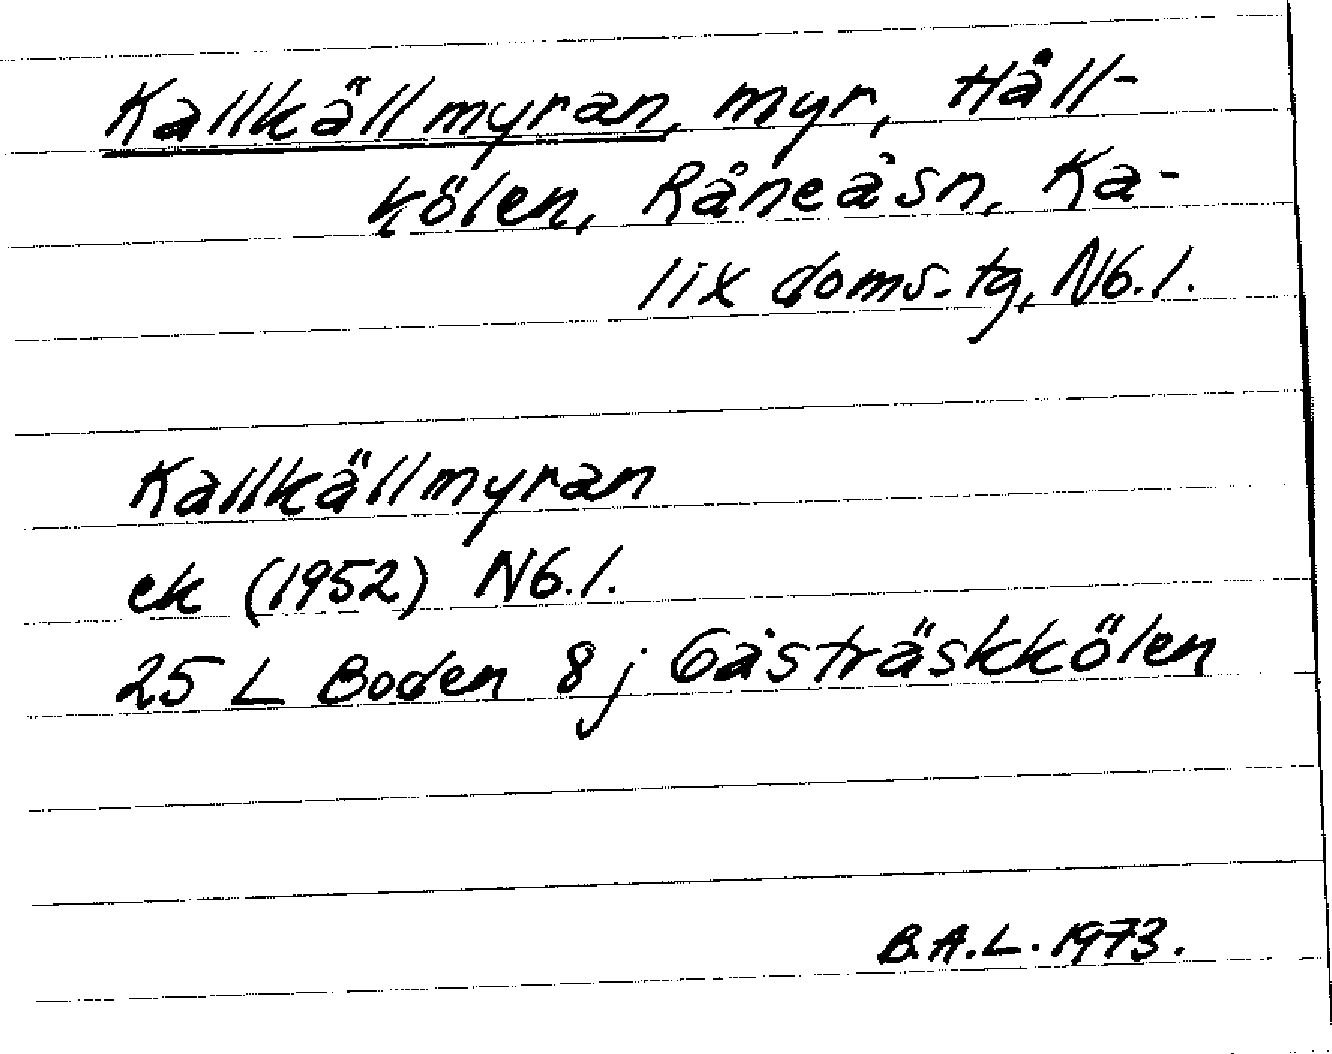 Kallkällmyran, myr, Håll-
kölen, Råneå sn, Ka-
lix doms. tg, Nb. l.
Kallkällmyran
ek (1952) Nb. l.
25 L Boden 8 j Gåsträskkölen
B.A.L. 1973.